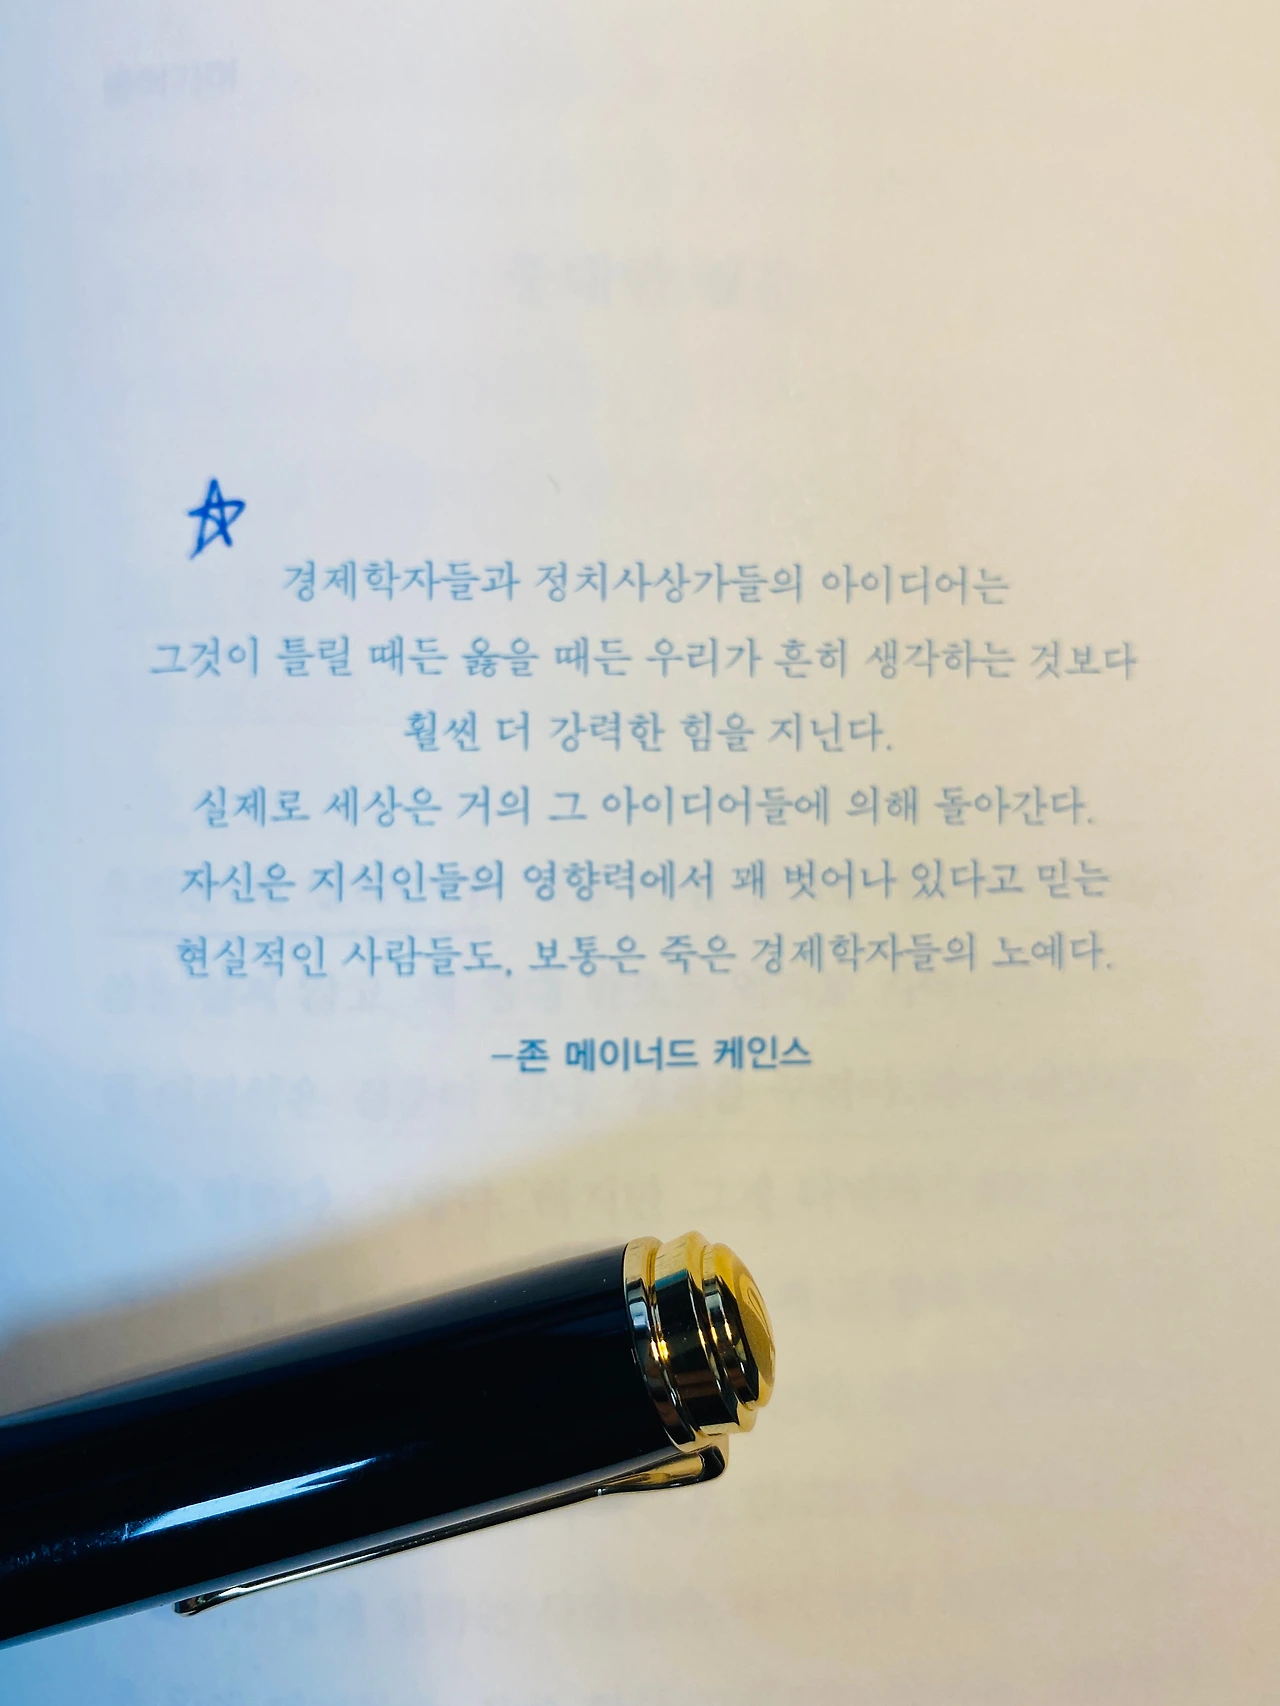 경제학자들과 정치사상가들의 아이디어는
그것이 틀릴 때든 옳을 때든 우리가 흔히 생각하는 것보다
훨씬 더 강력한 힘을 지닌다.
실제로 세상은 거의 그 아이디어들에 의해 돌아간다.
자신은 지식인들의 영향력에서 꽤 벗어나 있다고 믿는
현실적인 사람들도, 보통은 죽은 경제학자들의 노예다.
–존 메이너드 케인스